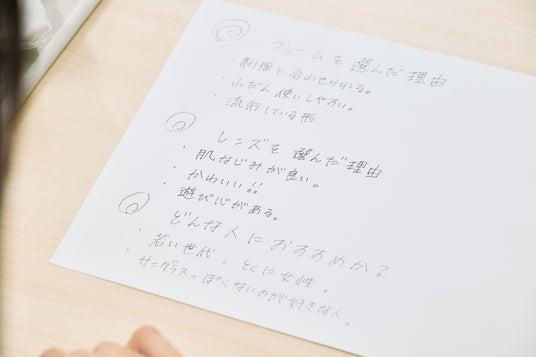 フレームを選んだ理由
・制服に合わせられる。
・ふだん使いしやすい。
・流行している形
レンズを選んだ理由
・肌なじみが良い。
・かわいい!!
・遊び心がある。
どんな人におすすめか?
・若い世代, とくに女性。
・サングラスっぽくないのが好きな人。